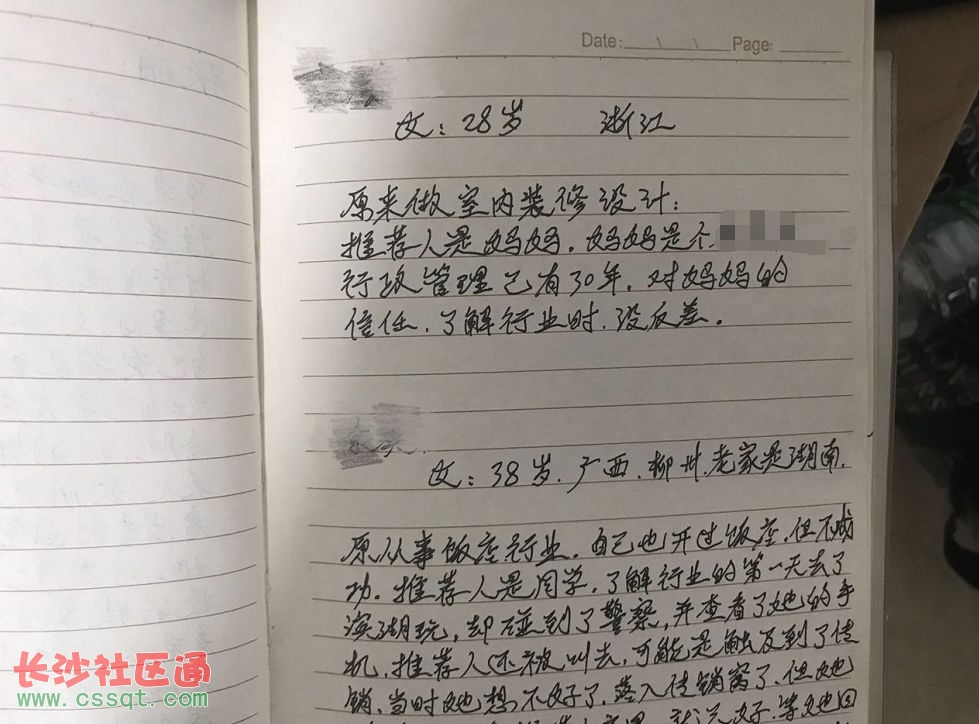 Date: Page:
女：28岁 浙江
原来做室内装修设计；
推荐人是妈妈．妈妈是个
行政管理已有30年．对妈妈的
信任．了解行业时．没反差。
女：38岁．广西．柳州．老家是湖南．
原从事饭店行业．自己也开过饭店．但不成
功．推荐人是同学．了解行业的第一天去了
滨湖玩，却碰到了警察，并查看了她的手
机．推荐人还被叫去，可能是触及到了传
销．当时她想不好了．落入传销窝了．但她
长沙社区通
www.cssqt.com